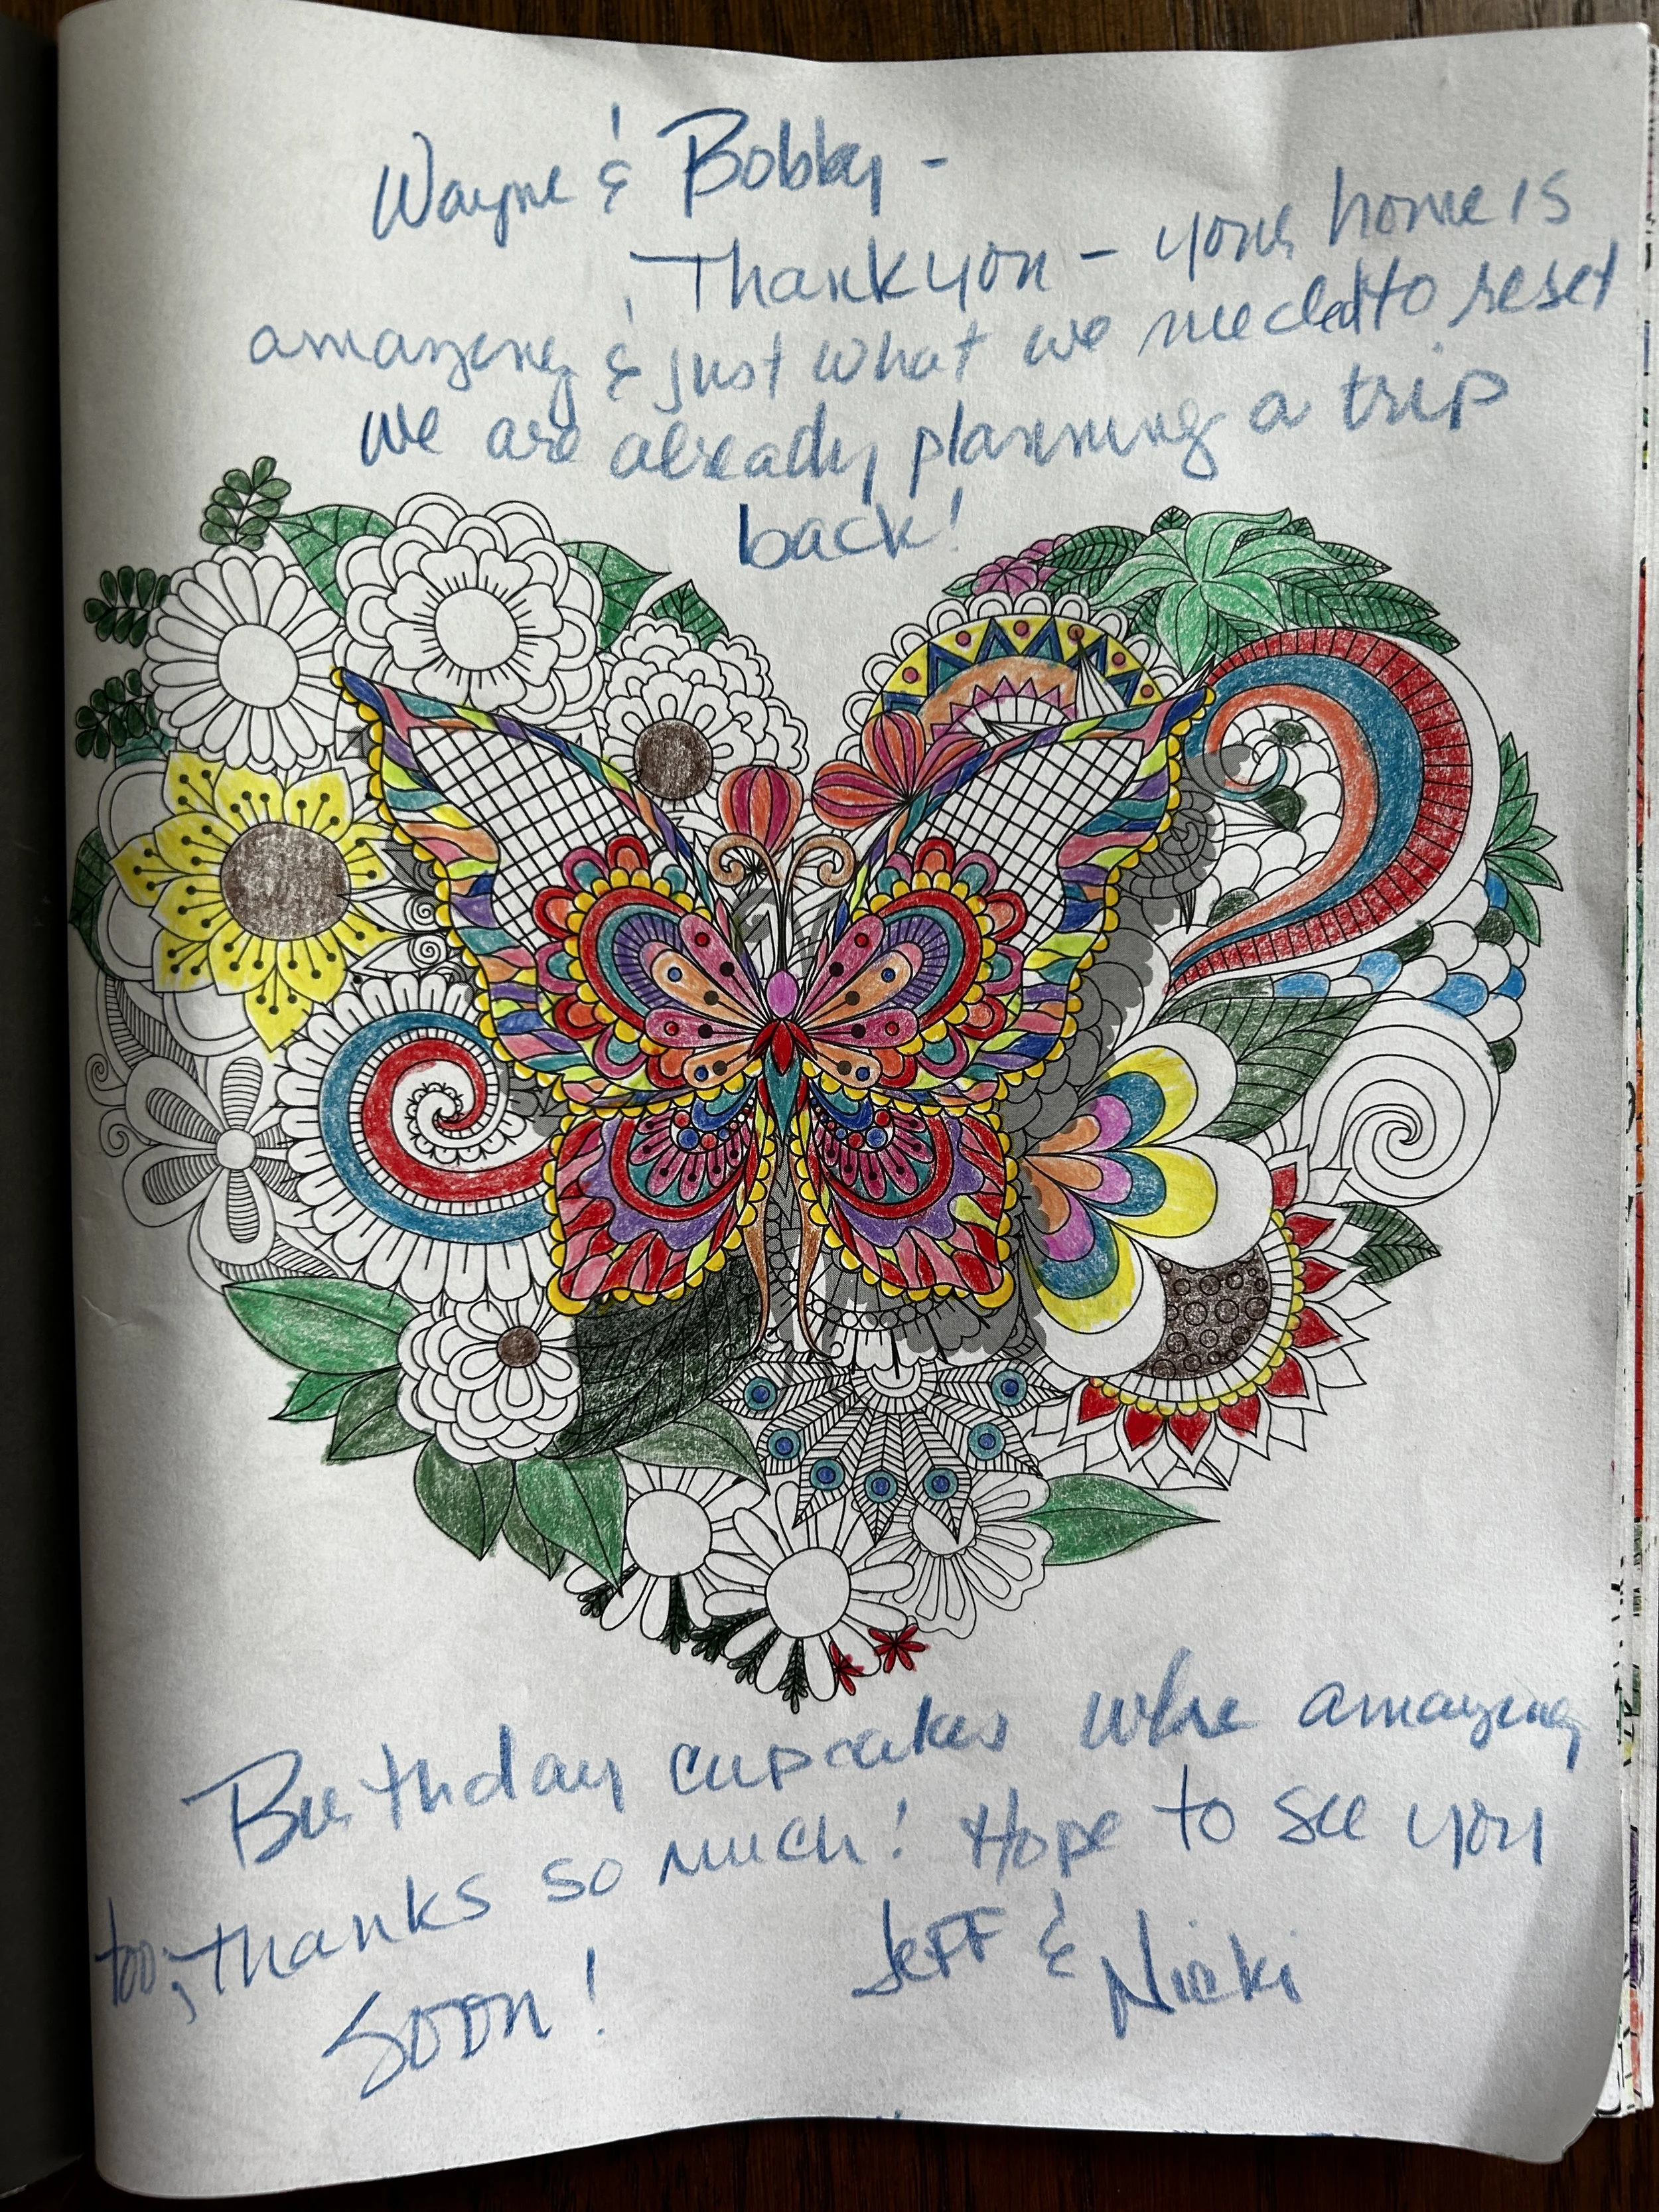 Wayne & Bobby -
Thank you - your home is
amazing & just what we needed to reset
We are already planning a trip
back!
Birthday cupcakes were amazing
too, thanks so much! Hope to see you
soon!
Jeff & Nicki